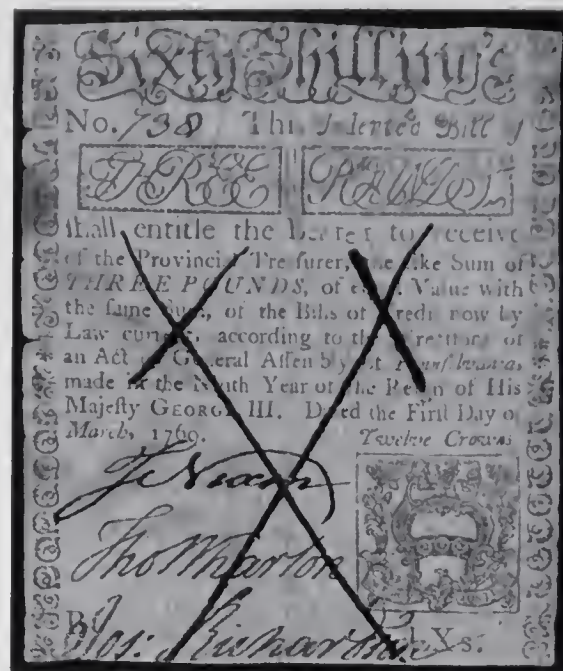 Sixty Shillings
No. 738 This Indented Bill of
THREE POUNDS
ſhall entitle the bearer to receive
of the Provincial Treaſurer, the like Sum of
THREE POUNDS, of equal Value with
the ſame Sum, of the Bills of Credit now by
Law current, according to the Directions of
an Act of General Aſſembly of Pennſylvania,
made in the Ninth Year of the Reign of His
Majeſty GEORGE III. Dated the Firſt Day of
March, 1769. Twelve Crowns
Tho Wharton
Jos: Richardson